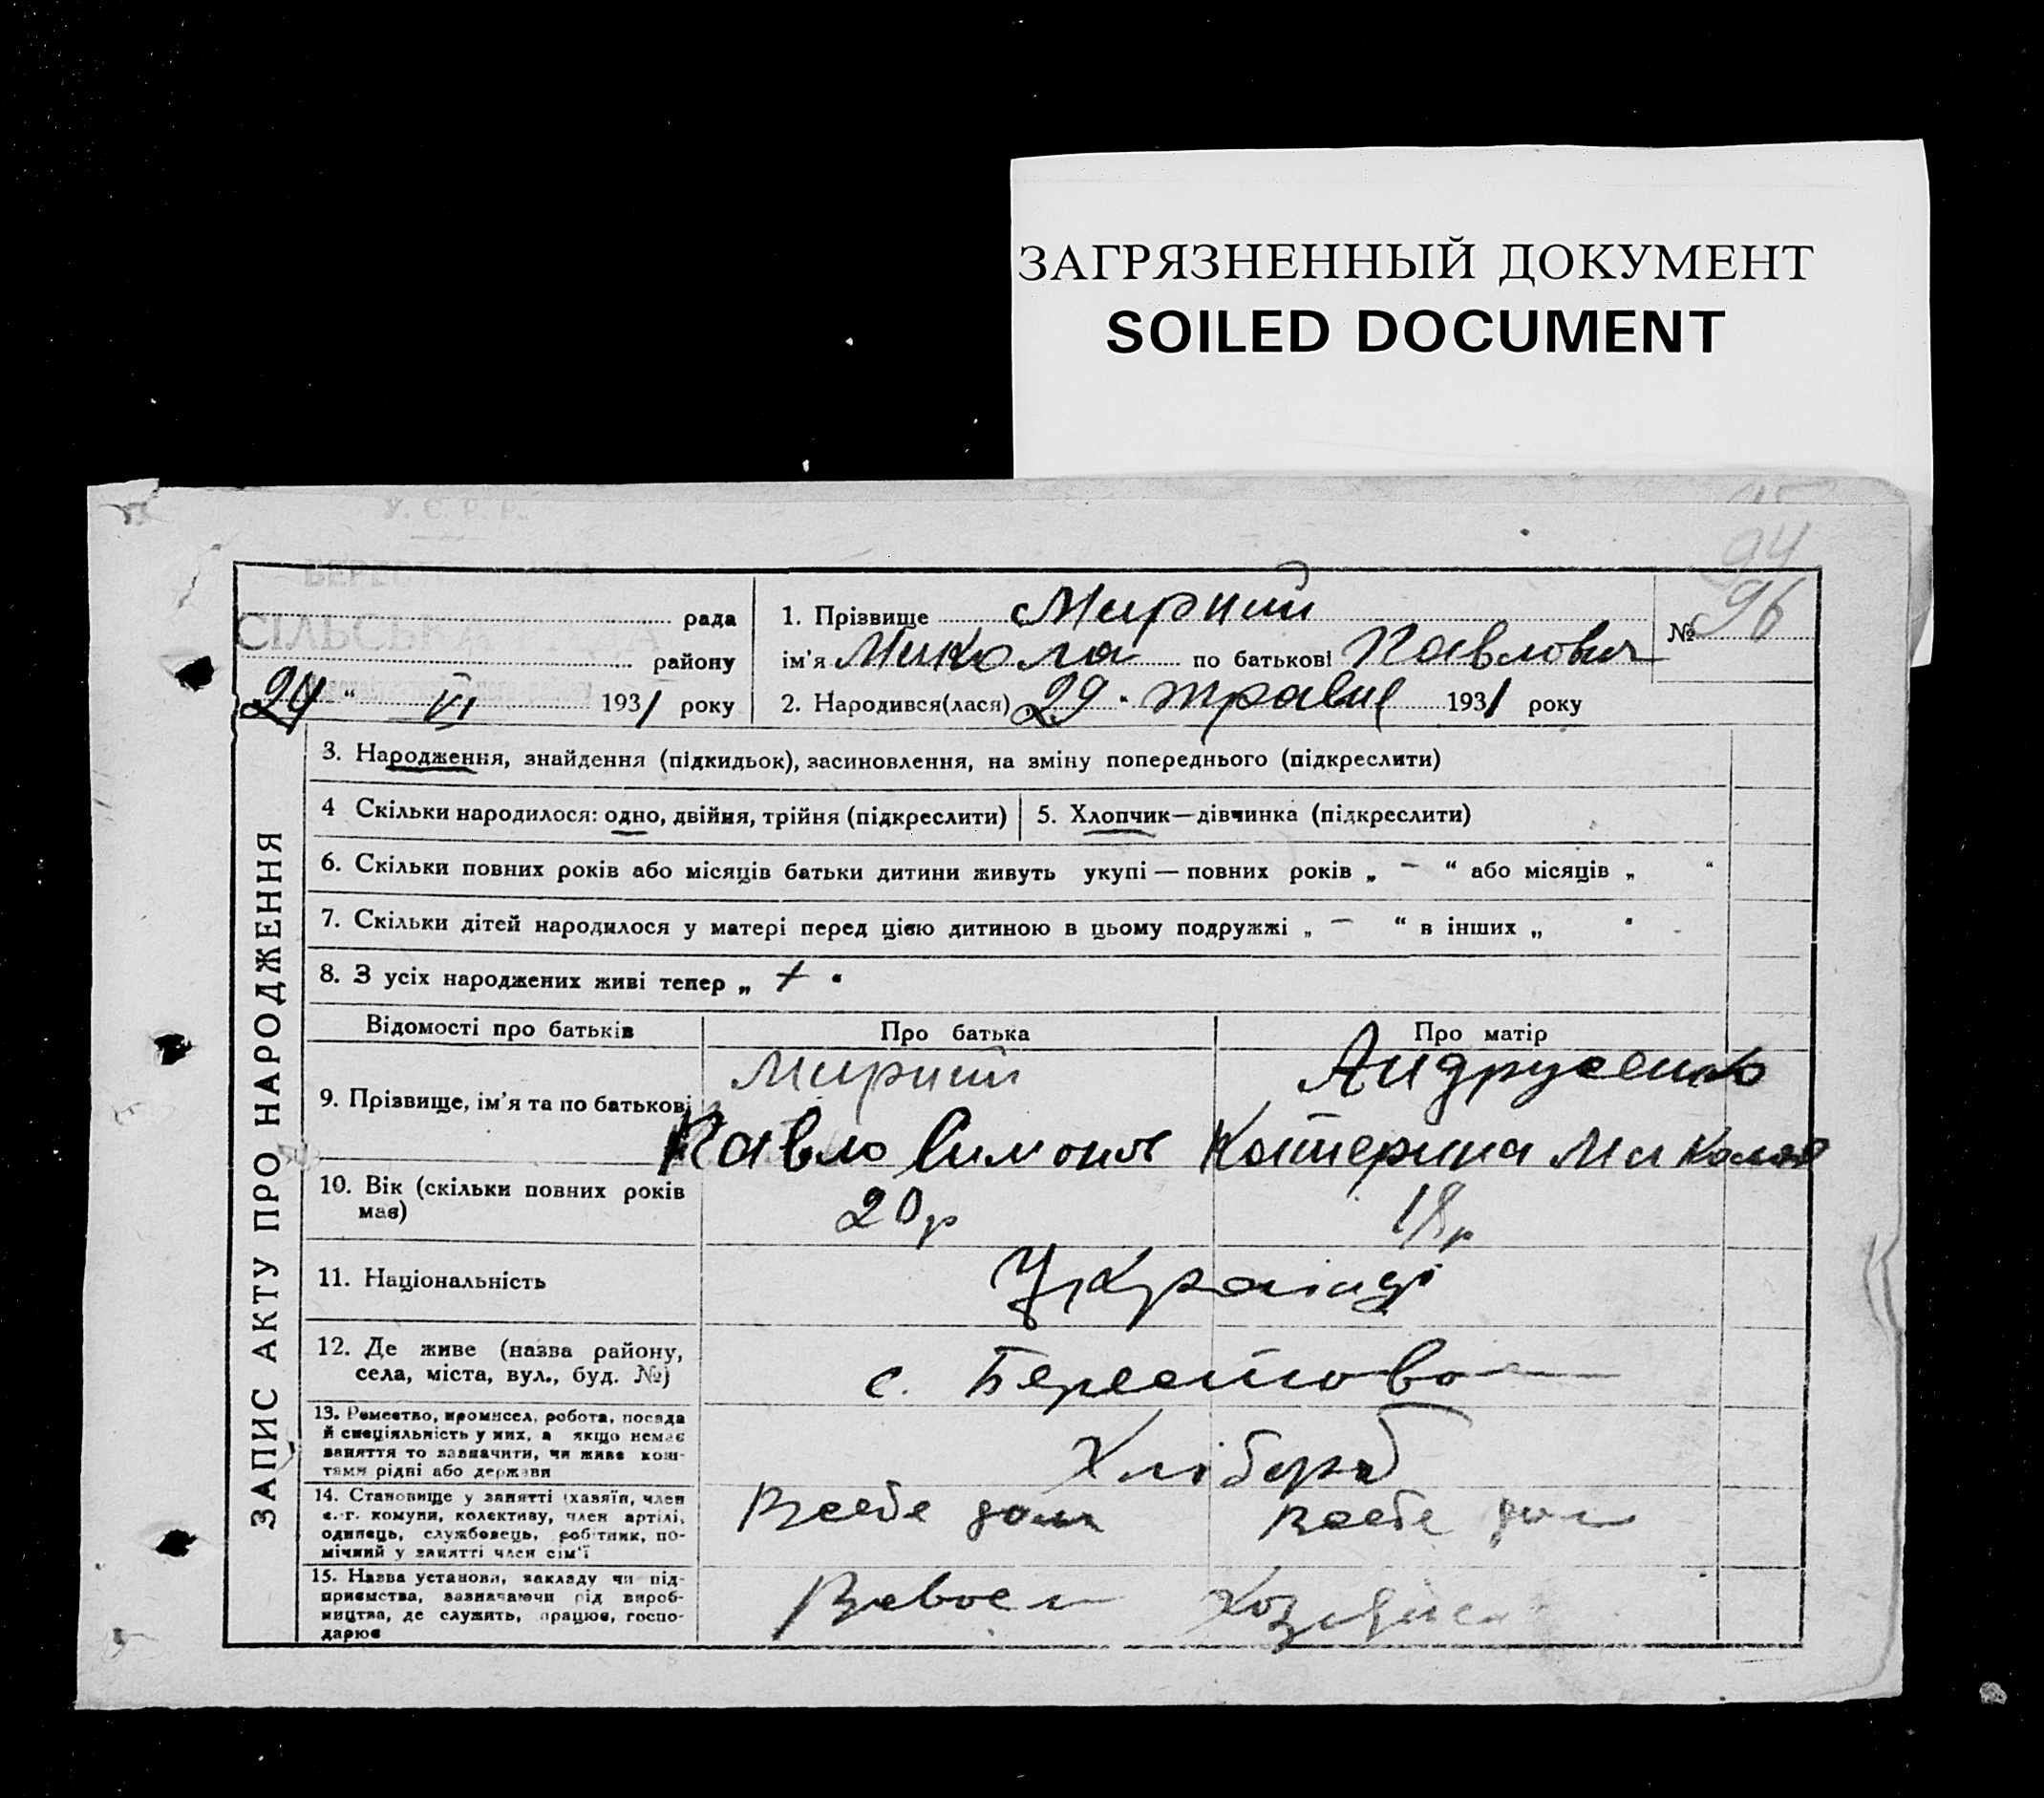 ЗАГРЯЗНЕННЫЙ ДОКУМЕНТ
SOILED DOCUMENT
У. С. Р. Р.
94
96
№
рада
СІЛЬСЬКА РАДА
району
24 “ VI 1931 року
1. Прізвище Мирний
ім’я Микола по батькові Павлович
2. Народився(лася) 29 травня 1931 року
ЗАПИС АКТУ ПРО НАРОДЖЕННЯ
3. Народження, знайдення (підкидьок), засиновлення, на зміну попереднього (підкреслити)
4 Скільки народилося: одно, двійня, трійня (підкреслити)
5. Хлопчик—дівчинка (підкреслити)
6. Скільки повних років або місяців батьки дитини живуть укупі — повних років „ — “ або місяців „ “
7. Скільки дітей народилося у матері перед цією дитиною в цьому подружжі „ — “ в інших „ “
8. З усіх народжених живі тепер „ + “
Відомості про батьків
Про батька
Про матір
9. Прізвище, ім’я та по батькові
Мирний
Павло Симонов
Андрусенко
Катерина Микола
10. Вік (скільки повних років
має)
20 р
18 р
11. Національність
Українці
12. Де живе (назва району,
села, міста, вул., буд. №)
с. Берестова
13. Ремество, промисел, робота, посада
й спеціяльність у них, а якщо немає
заняття то зазначити, чи живе кош-
тами рідні або держави
Хлібороб
14. Становище у занятті (хазяїн, член
с.-г. комуни, колективу, член артілі,
одинець, службовець, робітник, по-
мічний у занятті член сім’ї
15. Назва установи, закладу чи під-
приємства, зазначаючи рід вироб-
ництва, де служить, працює, госпо-
дарює